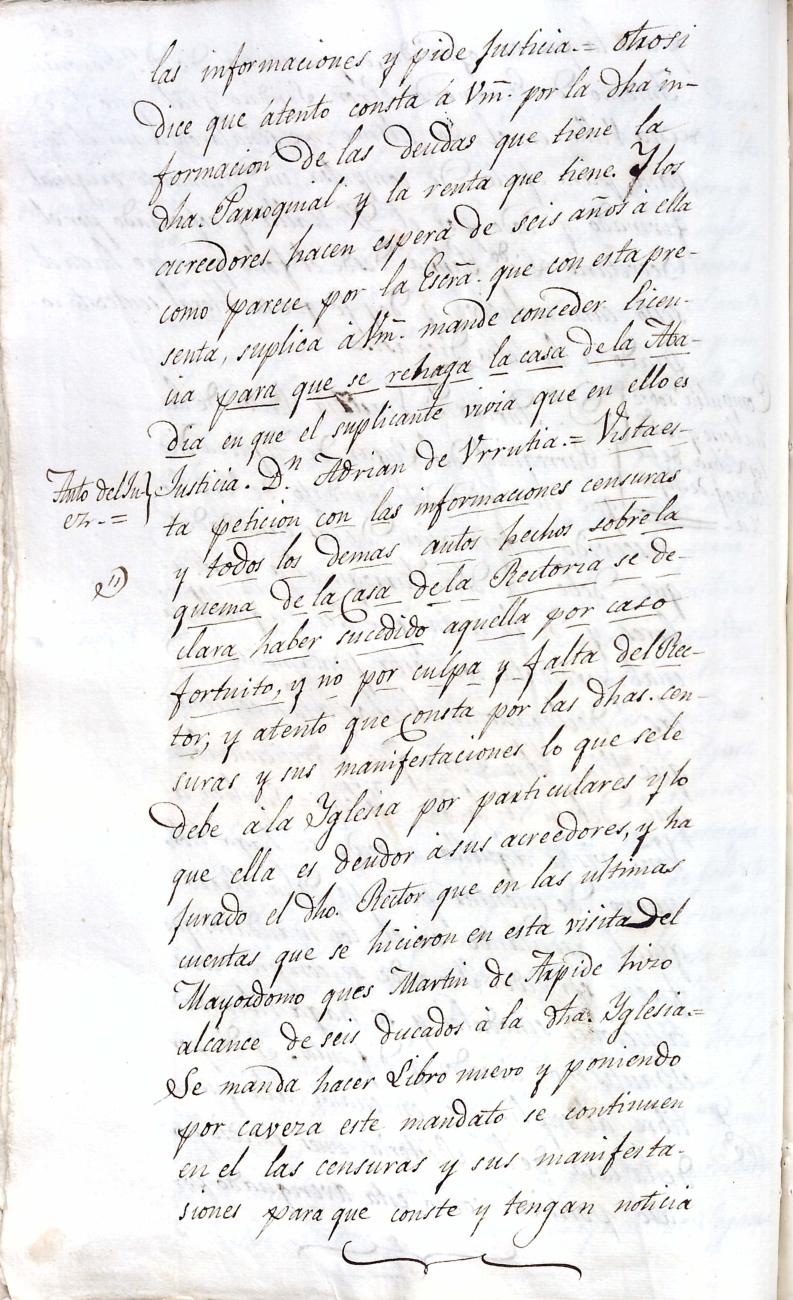 las informaciones y pide Justicia.= Otrosi
dice que atento consta á Vm̃. por la dha in-
formacion de las deudas que tiene la
dha. Parroquial y la renta que tiene. Y los
acreedores hacen espera de seis años á ella
como parece por la Escrã. que con esta pre-
senta, suplica á Vm̃. mande conceder licen-
cia para que se rehaga la casa de la Aba-
dia en que el suplicante vivia que en ello es
Justicia. Dⁿ Adrian de Urrutia.= Vista es-
Auto del Ju-
ez.=
ta peticion con las informaciones censuras
y todos los demas autos hechos sobre la
11
quema de la Casa de la Rectoria se de-
clara haber sucedido aquella por caso
fortuito, y no por culpa y falta del Rec-
tor, y atento que Consta por las dhas. cen-
suras y sus manifestaciones lo que se le
debe a la Yglesia por particulares y lo
que ella es deudor á sus acreedores, y ha
jurado el dho. Rector que en las ultimas
cuentas que se hicieron en esta visita del
Mayordomo ques Martin de Arpide hizo
alcance de seis ducados à la dha. Yglesia.=
Se manda hacer Libro nuevo y poniendo
por caveza este mandato se continuen
en el las censuras y sus manifesta-
siones para que conste y tengan noticia